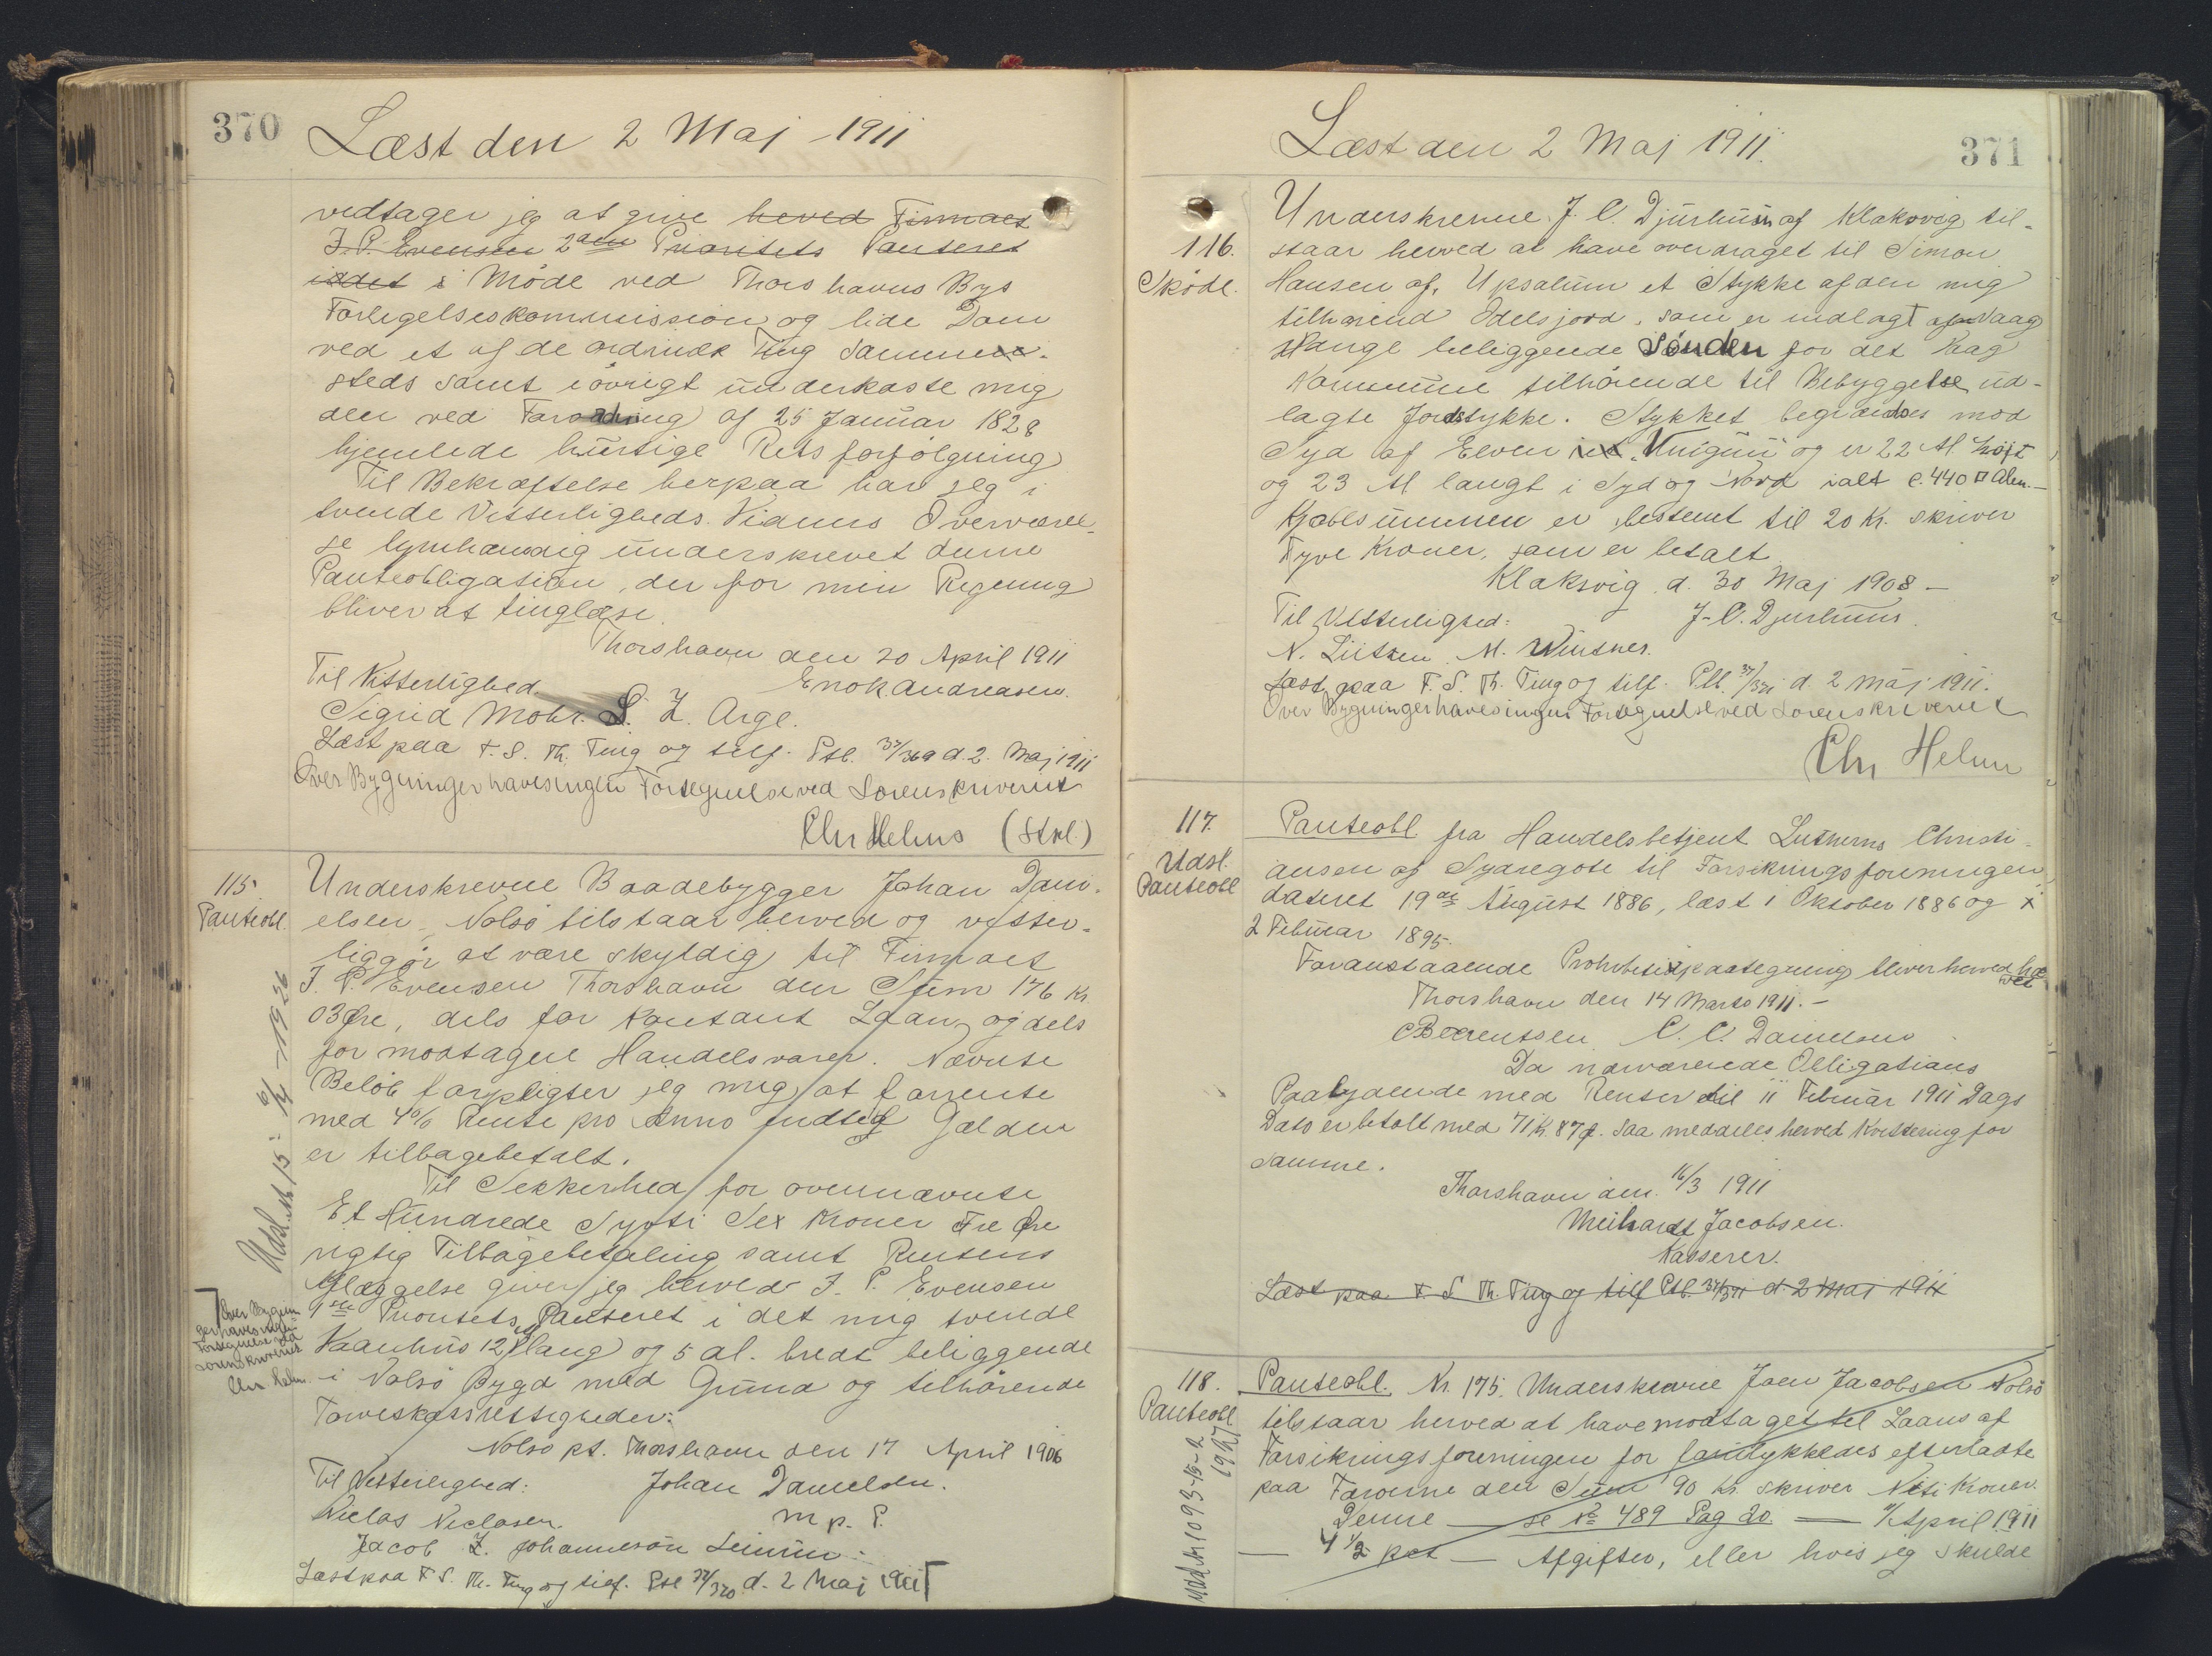 370
Læst den 2 Maj 1911
vedtager jeg at give herved Firmaet
J. P. Evensen 2den Prioritets Panteret
i Möde ved Thorshavns Bys
Forligelseskommission og lide Dom
ved et af de ordinære Ting samme-
steds samt iövrigt underkaste mig
den ved Forordning af 25 Januar 1828
hjemlede hurtige Retsforfölgning
Til Bekræftelse herpaa har jeg i
tvende Vitterligheds Vidners Overværel-
se egenhændig underskrevet denne
Panteobligation, der for min Regning
bliver at tinglæse.
Thorshavn den 20 April 1911
Til Vitterlighed. Enok Andreasen.
Sigrid Mohr. S. Z. Arge.
Læst paa F. S. Th. Ting og tilf. Ptb. 37/369 d. 2. Maj 1911
Over Bygninger haves ingen Fortegnelse ved Sorenskriveriet
Chr Helms (Stkl.)
115
Panteobl.
Underskrevne Baadebygger Johan Dani-
elsen, Nolsö tilstaar herved og vitter-
liggör at være skyldig til Firmaet
J. P. Evensen Thorshavn den Sum 176 Kr.
03 Öre, dels for Kontant Laan og dels
for modtagne Handelsvarer. Nævnte
Belöb forpligter jeg mig at forrente
med 4% Rente pro Anno indtil Gælden
er tilbagebetalt.
Til Sikkerhed for ovennævnte
Et Hundrede Sytti Sex Kroner Tre Öre
rigtig Tilbagebetaling samt Rentens
Erlæggelse giver jeg herved J. P. Evensen
1ste Prioritets Panteret i det mig tilhörende
12 al lang og 5 al. bredt beliggende
i Nolsö Bygd med Grund og tilhörende
Nolsö pt. Thorshavn den 17 April 1906
Til Vitterlighed: Johan Danielsen.
Niclas Niclasen. m. p. P.
Jacob Z. Johannesön
Læst paa F. S. Th. Ting og tilf. Ptb 37/370 d. 2 Maj 1911
Over Bygnin-
ger haves ingen
Fortegnelse ved
Sorenskriveriet
Chr Helms
Læst den 2 Maj 1911.
371
116.
Sköde.
Underskrevne J. C. Djurhuus af Klaksvig til-
staar herved at have overdraget til Simon
Hansen af Upsalum et Stykke af den mig
tilhörend Odelsjord, som er indlagt af Vaag
Hauge beliggende Sönden for det Vaag
Kommune tilhörende til Bebyggelse ud-
lagte Jordstykke. Stykket begrændses mod
Syd af Elven og er 22 Al
og 23 Al langt i Syd og Nord ialt c. 440 □ Alen.-
Kjöbesummen er bestemt til 20 Kr. skriver
Tyve Kroner, som er betalt
Klaksvig d. 30 Maj 1908 -
Til Vitterlighed: J. C. Djurhuus.
N. Lützen. M. Winther.
Læst paa F. S. Th. Ting og tilf. Ptb. 37/371 d. 2 Maj 1911.
Over Bygninger haves ingen Fortegnelse ved Sorenskriveriet
Chr Helms
117.
Udsl.
Panteobl
Panteobl fra Handelsbetjent Lutherus Christi-
ansen af Sydregöte til Forsikringsforeningen
dateret 19de August 1886, læst i Oktober 1886 og x
2 Februar 1895.
Foranstaaende Prohibitivpaategning bliver herved hæ
vet
Thorshavn den 14 Marts 1911. -
C Bærentsen C. C. Danielsen
Da nærværende Obligations
Paalydende med Renter til 11 Februar 1911 Dags
Dato er betalt med 71 K. 87 ø. saa meddeles herved Kvittering for
samme.
Thorshavn den 16/3 1911
Meinhardt Jacobsen.
Kasserer.
Læst paa F. S Th. Ting og tilf Ptb. 37/371 d. 2 Maj 1911
118.
Panteobl
Panteobl. Nr. 175. Underskrevne Joen Jacobsen Nolsö
tilstaar herved at have modtaget til Laans af
Forsikringsforeningen for forulykkedes efterladte
paa Færöerne den Sum 90 Kr. skriver Niti Kroner.
Denne — se No 489 Pag 20. — April 1911
— 4 1/2 pct — Afgifter, eller hvis jeg skulde